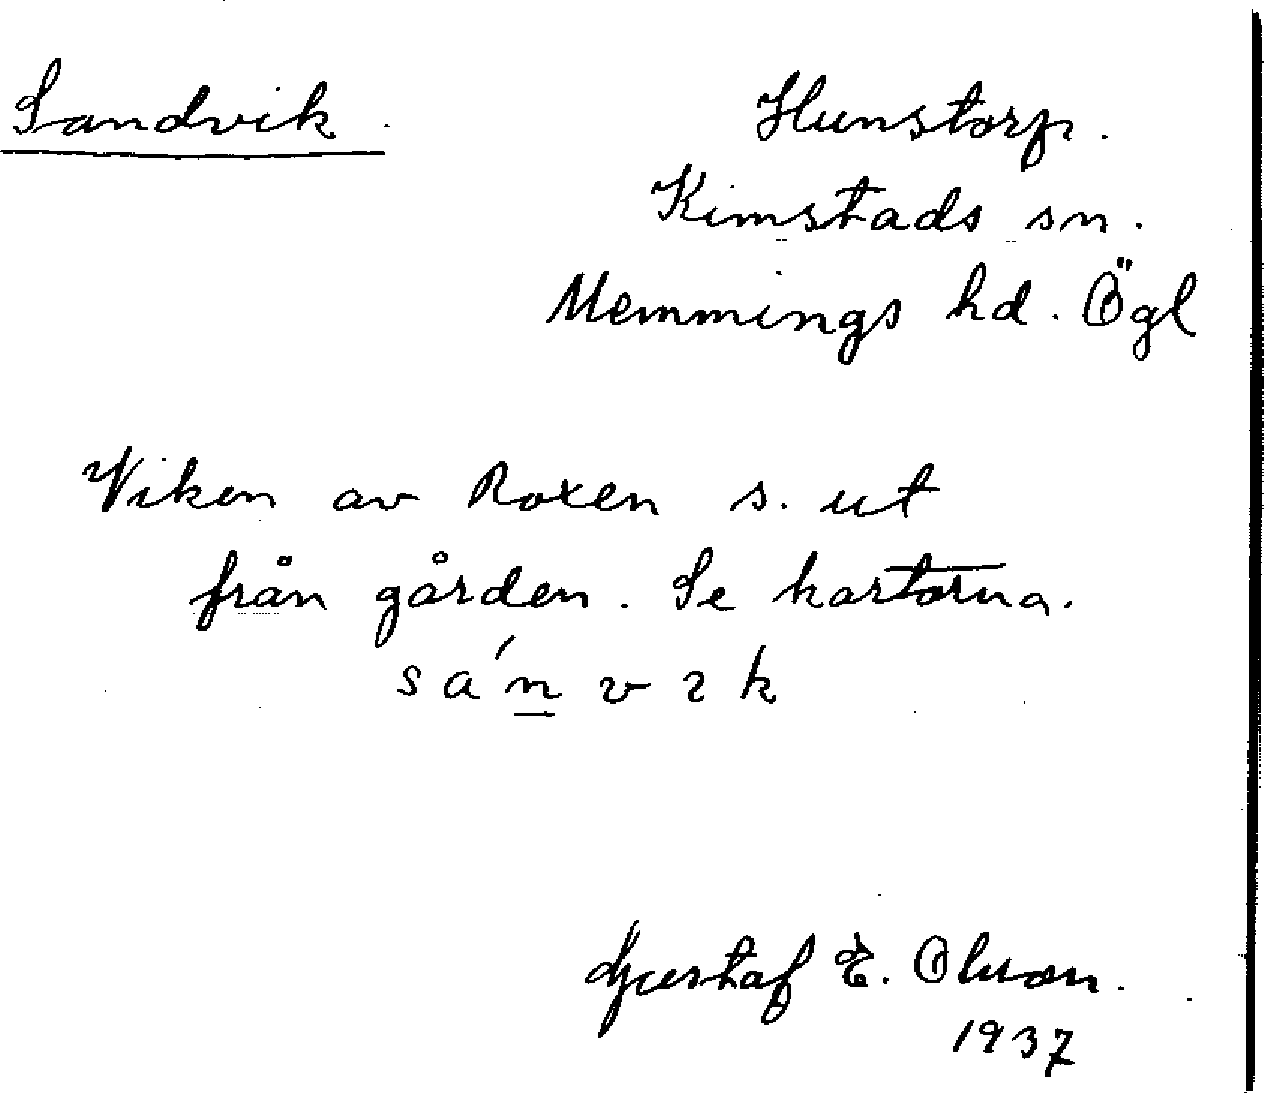 Sandvik.
Hunstorp.
Kimstads sn.
Memmings hd. Ögl
Viken av Roxen s. ut
från gården. Se kartorna.
sa´n̲vık
Gustaf E. Olsson.
1937